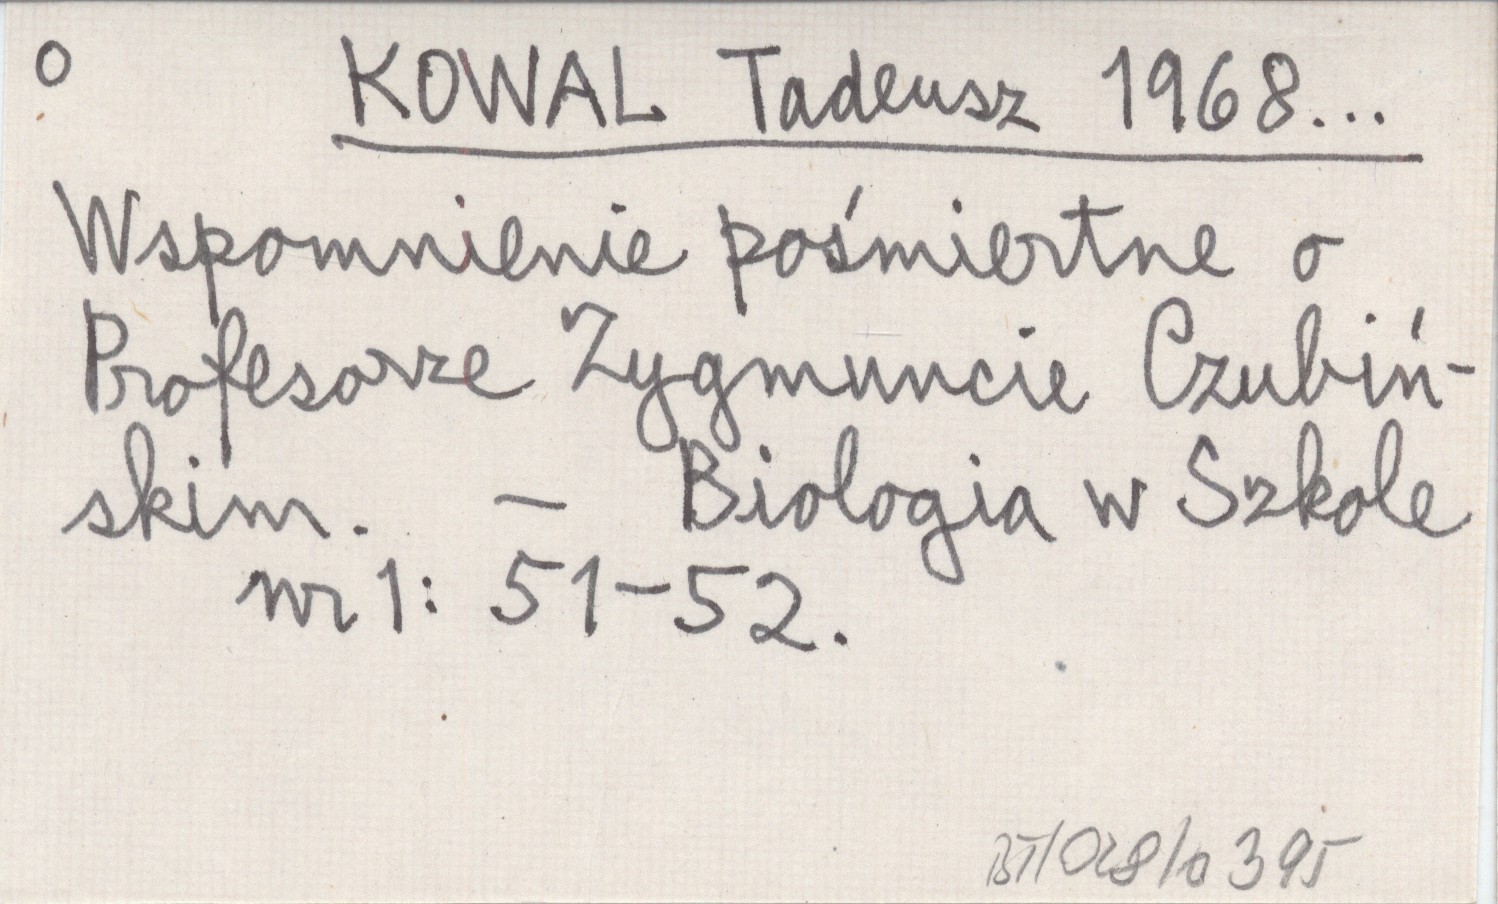 o
KOWAL Tadeusz 1968...
Wspomnienie pośmiertne o
Profesorze Zygmuncie Czubiń-
skim. – Biologia w Szkole
nr 1: 51–52.
395